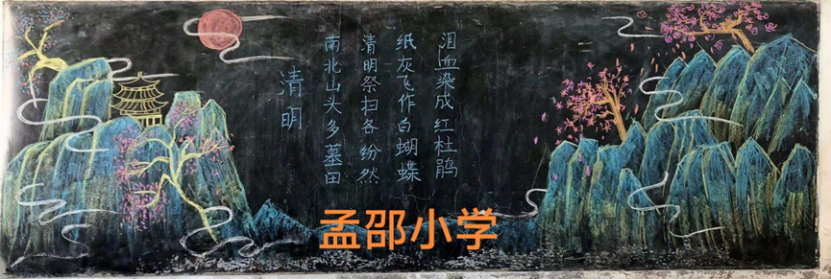 清明
南北山头多墓田
清明祭扫各纷然
纸灰飞作白蝴蝶
泪血染成红杜鹃
孟邵小学